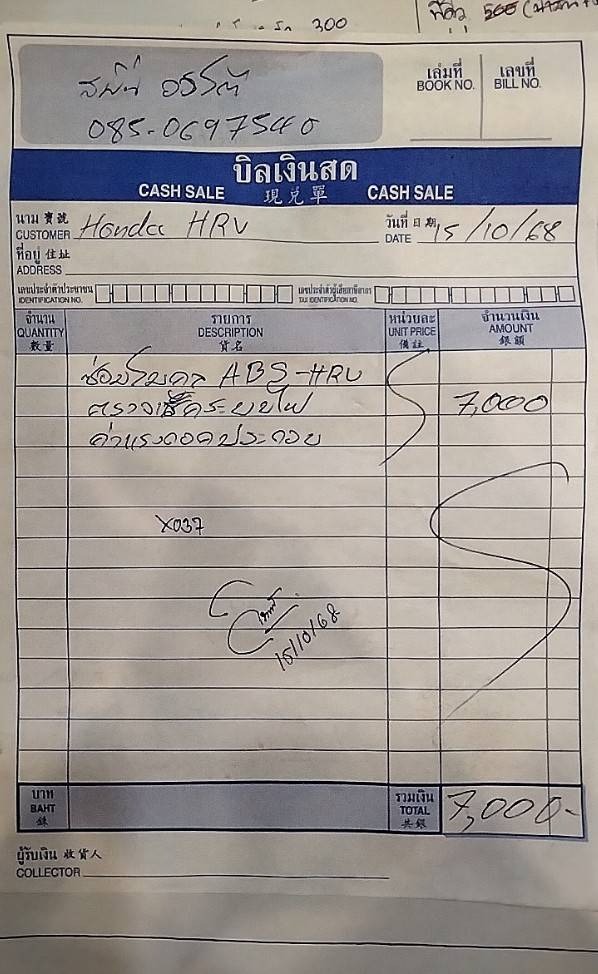 300
085-0697540
เล่มที่ เลขที่
BOOK NO. BILL NO.
บิลเงินสด
CASH SALE 現兑單 CASH SALE
นาม 寶號 วันที่ 日期
CUSTOMER Honda HRV DATE 15/10/68
ที่อยู่ 住址
ADDRESS
เลขประจำตัวประชาชน เลขประจำตัวผู้เสียภาษีอากร
IDENTIFICATION NO. TAX IDENTIFICATION NO.
จำนวน รายการ หน่วยละ จำนวนเงิน
QUANTITY DESCRIPTION UNIT PRICE AMOUNT
數量 貨名 備註 銀額
ซ่อมโมดูล ABS-HRV
ตรวจเช็คระบบไฟ 7,000
ค่าแรงถอดประกอบ
X037
15/10/68
บาท รวมเงิน
BAHT TOTAL 7,000-
銖 共銀
ผู้รับเงิน 收貨人
COLLECTOR